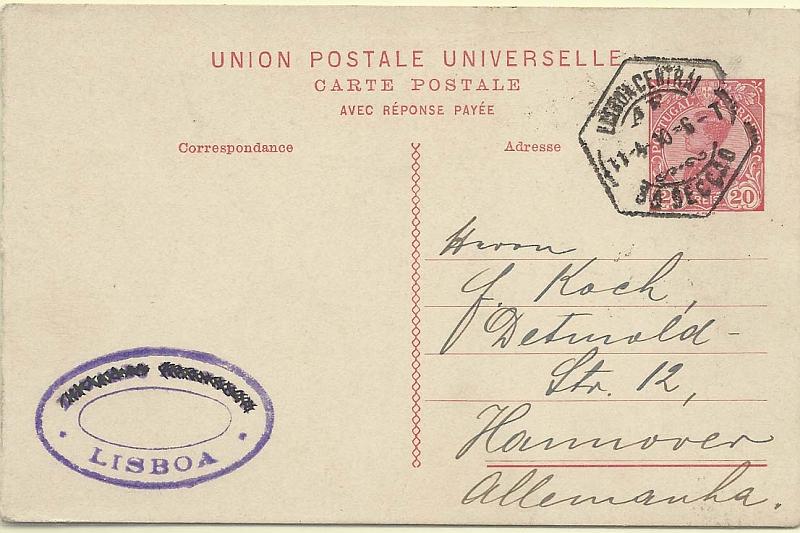 UNION POSTALE UNIVERSELLE
CARTE POSTALE
AVEC RÉPONSE PAYÉE
Correspondance
Adresse
LISBOA CENTRAL
3ª SECÇÃO
PORTUGAL
20
Herrn
F. Koch,
Detmold-
Str. 12,
Hannover
Allemanha.
LISBOA